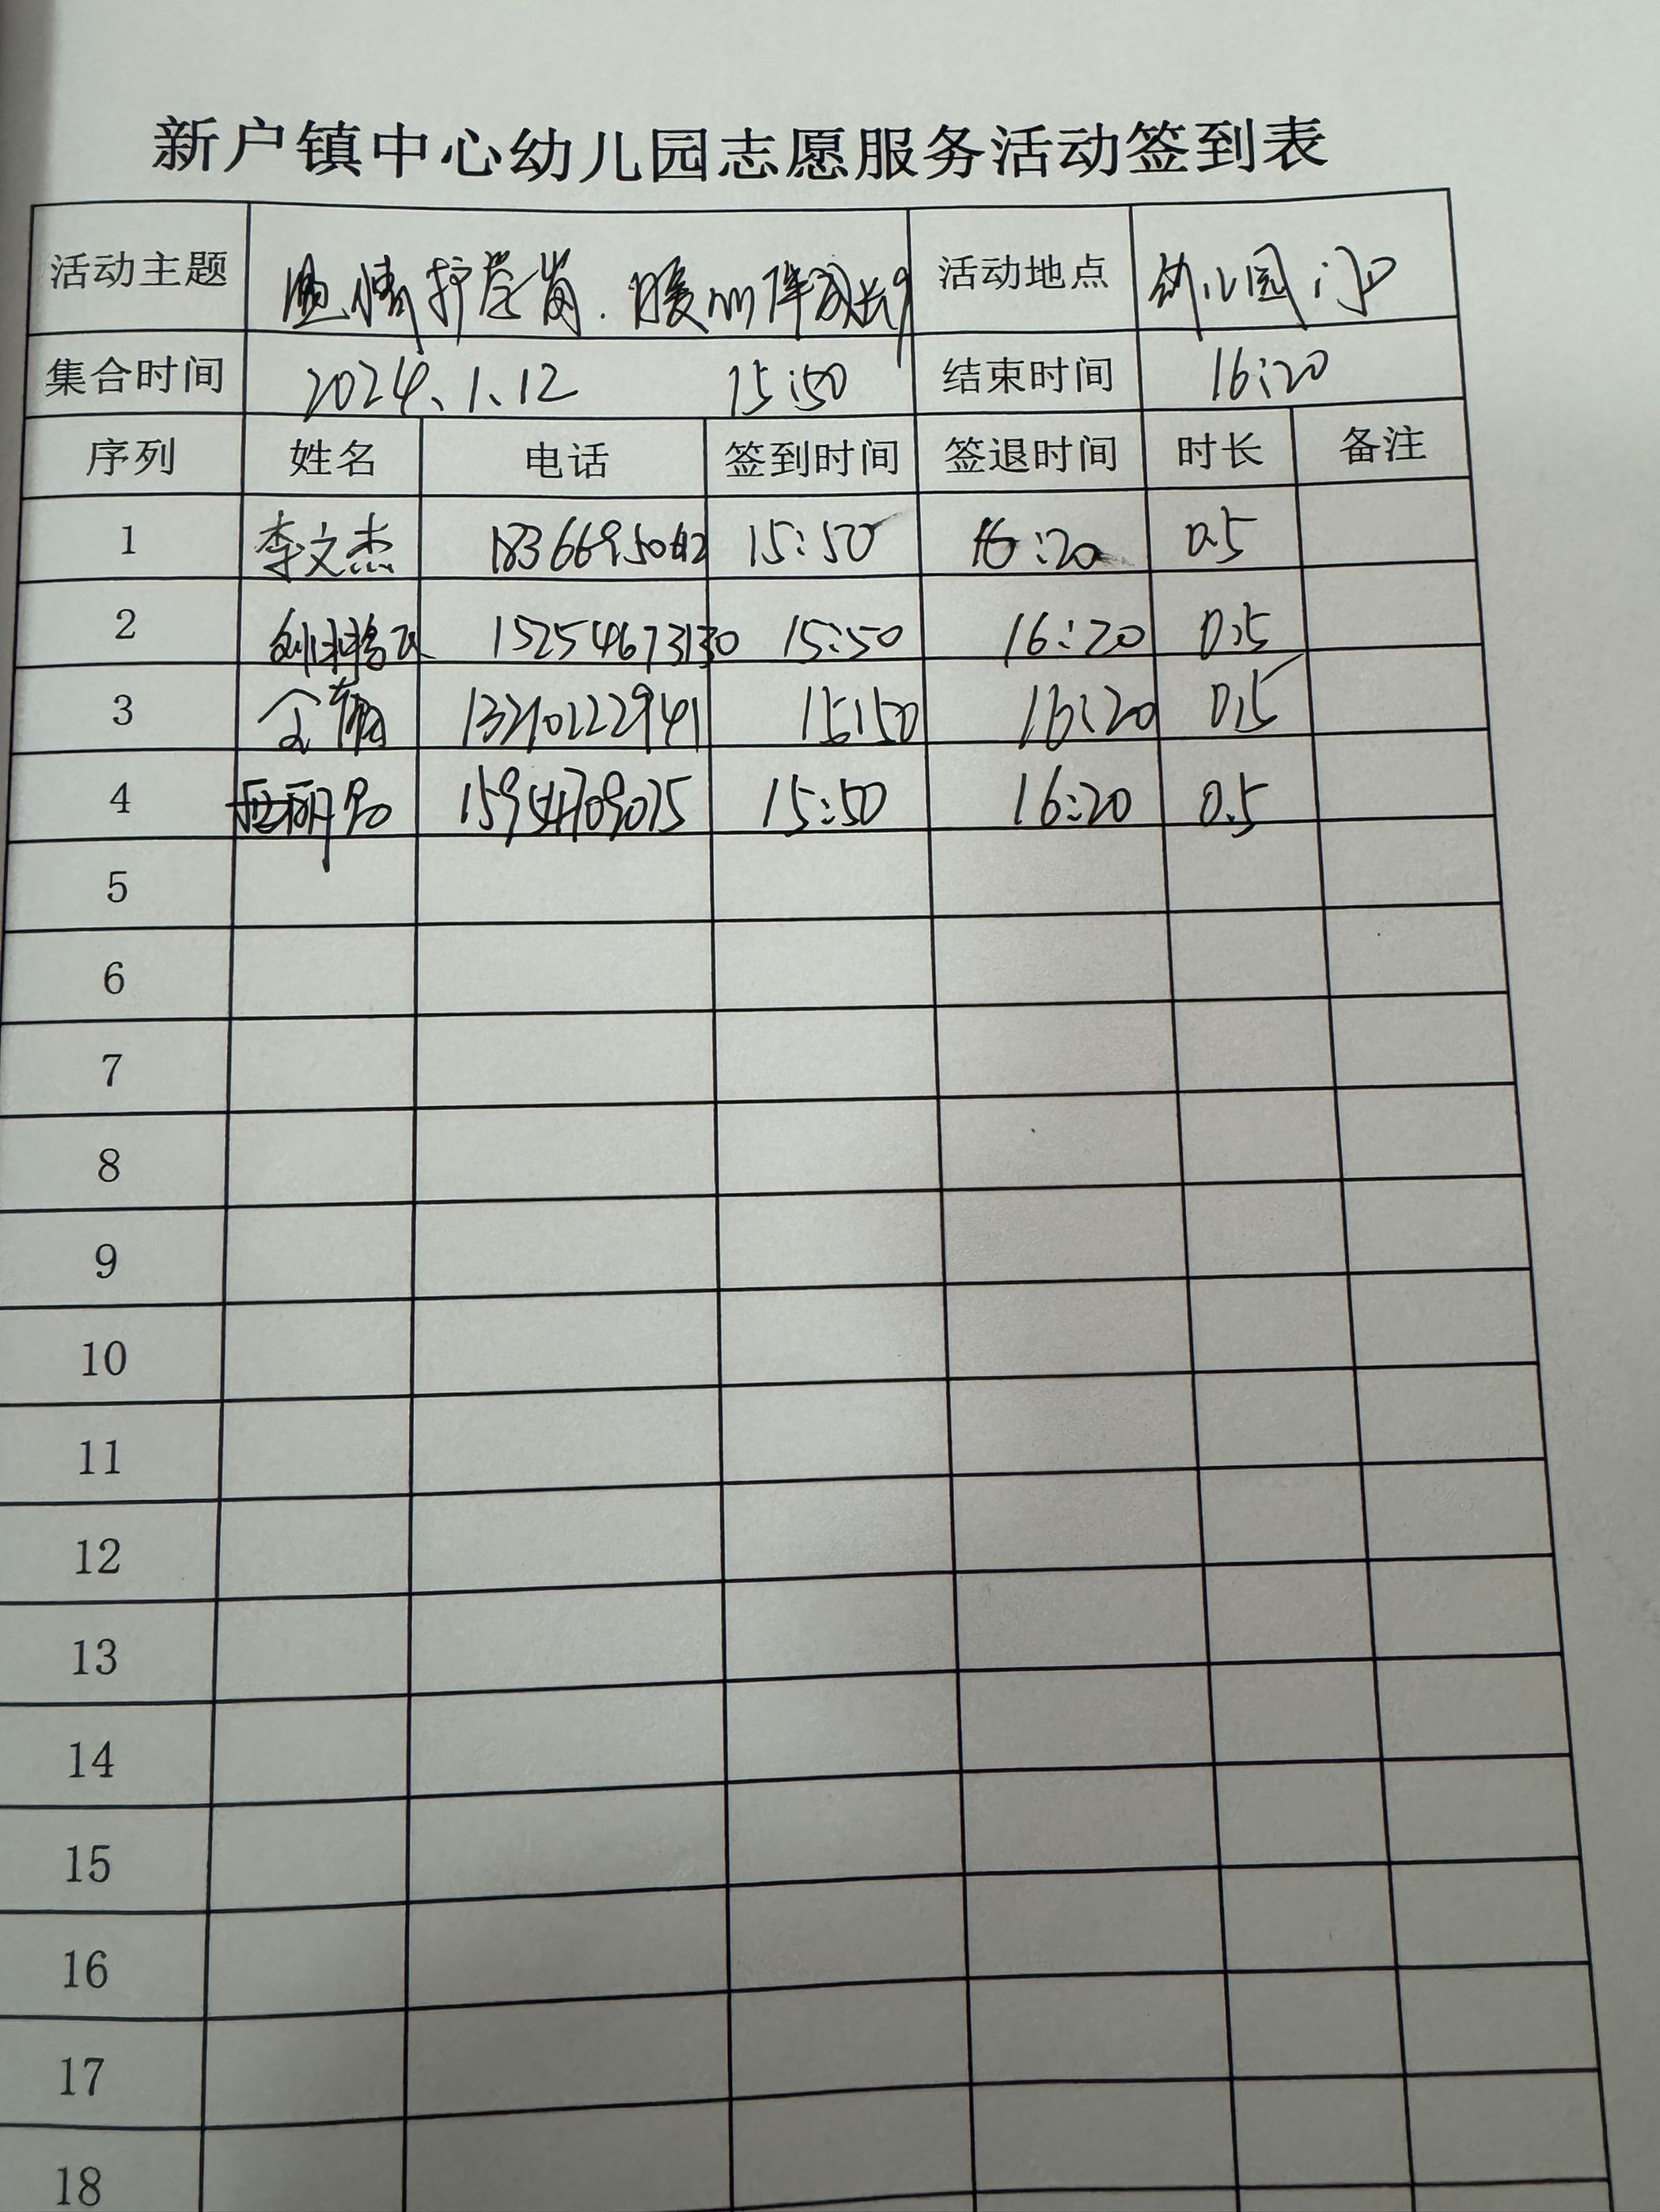 新户镇中心幼儿园志愿服务活动签到表
活动主题 温情护学岗.暖心伴成长 活动地点 幼儿园门口
集合时间 2024、1、12 15:50 结束时间 16:20
序列 姓名 电话 签到时间 签退时间 时长 备注
1 李文杰 15:50 16:20 0.5
2 15254673130 15:50 16:20 0.5
3 13210222941 15:50 16:20 0.5
4 15954709075 15:50 16:20 0.5
5
6
7
8
9
10
11
12
13
14
15
16
17
18